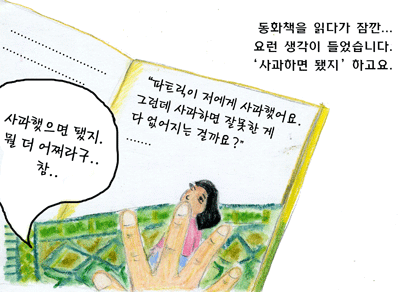 동화책을 읽다가 잠깐...
요런 생각이 들었습니다.
‘사과하면 됐지’ 하고요.
“파트릭이 저에게 사과했어요.
그런데 사과하면 잘못한 게
다 없어지는 걸까요?”
.......
사과했으면 됐지.
뭘 더 어쩌라구..
참..